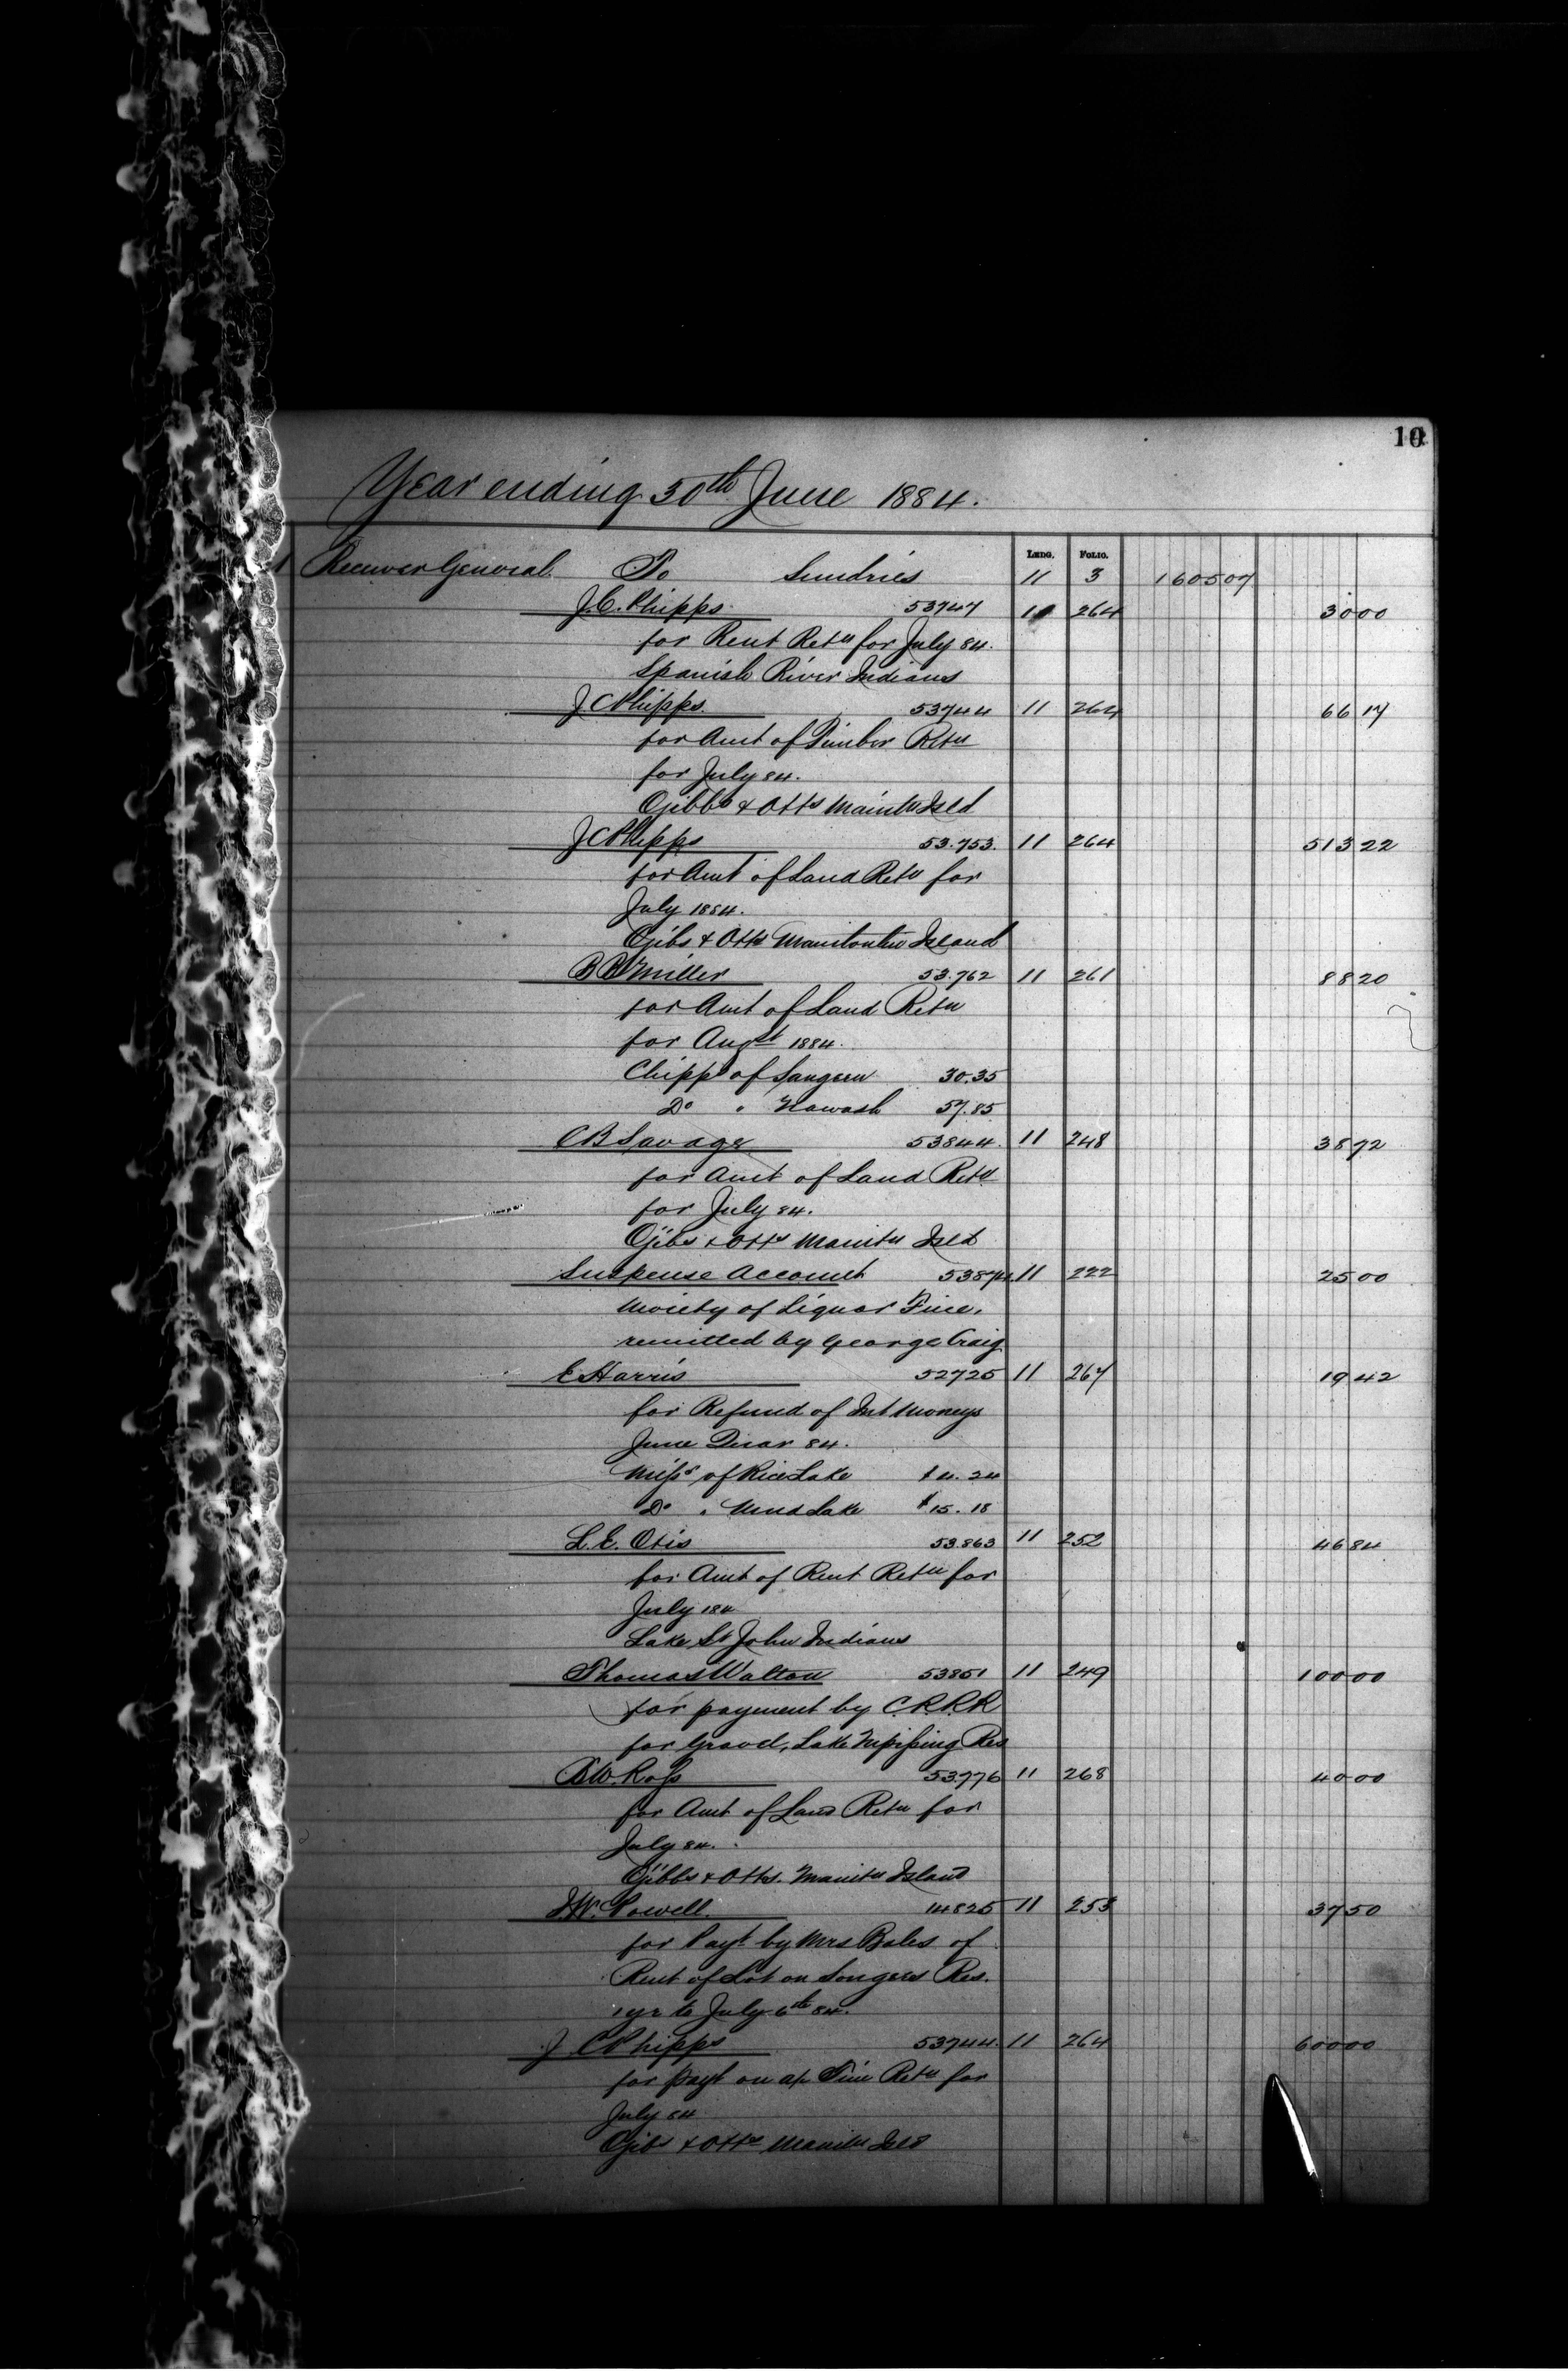 10
Year ending 30th June 1884.
Ledg. Folio.
Receiver General To Sundries 11 3 1605 07
J.C. Phipps 53747 11 264 30 00
for Rent Retn for July 84.
Spanish River Indians
J.C Phipps 53744 11 264 66 17
for Amt of Timber Retn
for July 84.
Ojibbs & Otts Manitn Isld
J C Phipps 53.753. 11 264 513 22
for Amt of Land Retn for
July 1884.
Ojibs & Otts Manitoulin Island
B B Miller 53.762 11 261 88 20
for Amt of Land Retn
for Augst 1884.
Chipps of Saugeen 30.35
Do " Nawash 57.85
C B Savage 53844. 11 248 38 72
for Amt of Land Retn
for July 84.
Ojibs & Otts Manitn Isld
Suspense Account 53874 11 222 25 00
Moiety of Liquor Fine,
remitted by George Craig
E Harris 52725 11 267 19 42
for Refund of Int Moneys
June Quar 84.
Misss of Rice Lake $4.24
Do " Mud Lake $15.18
L.E. Otis 53.863 11 252 46 84
for Amt of Rent Retn for
July 184
Lake St John Indians
Thomas Walton 53851 11 249 100 00
for payment by C.P.R.R
for Gravel, Lake Nipissing Res
B.W. Ross 53.776 11 268 40 00
for Amt of Land Retn for
July 84.
Ojibbs & Otts. Manitn Island
I.W. Powell. 14825 11 253 37 50
for Payt by Mrs Bales of
Rent of Lot on Songees Res.
1 yr to July 6th 84.
J C Phipps 53744. 11 264 600 00
for payt on a/c Tim Retn for
July 84
Ojibs & Otts Manitn Isld